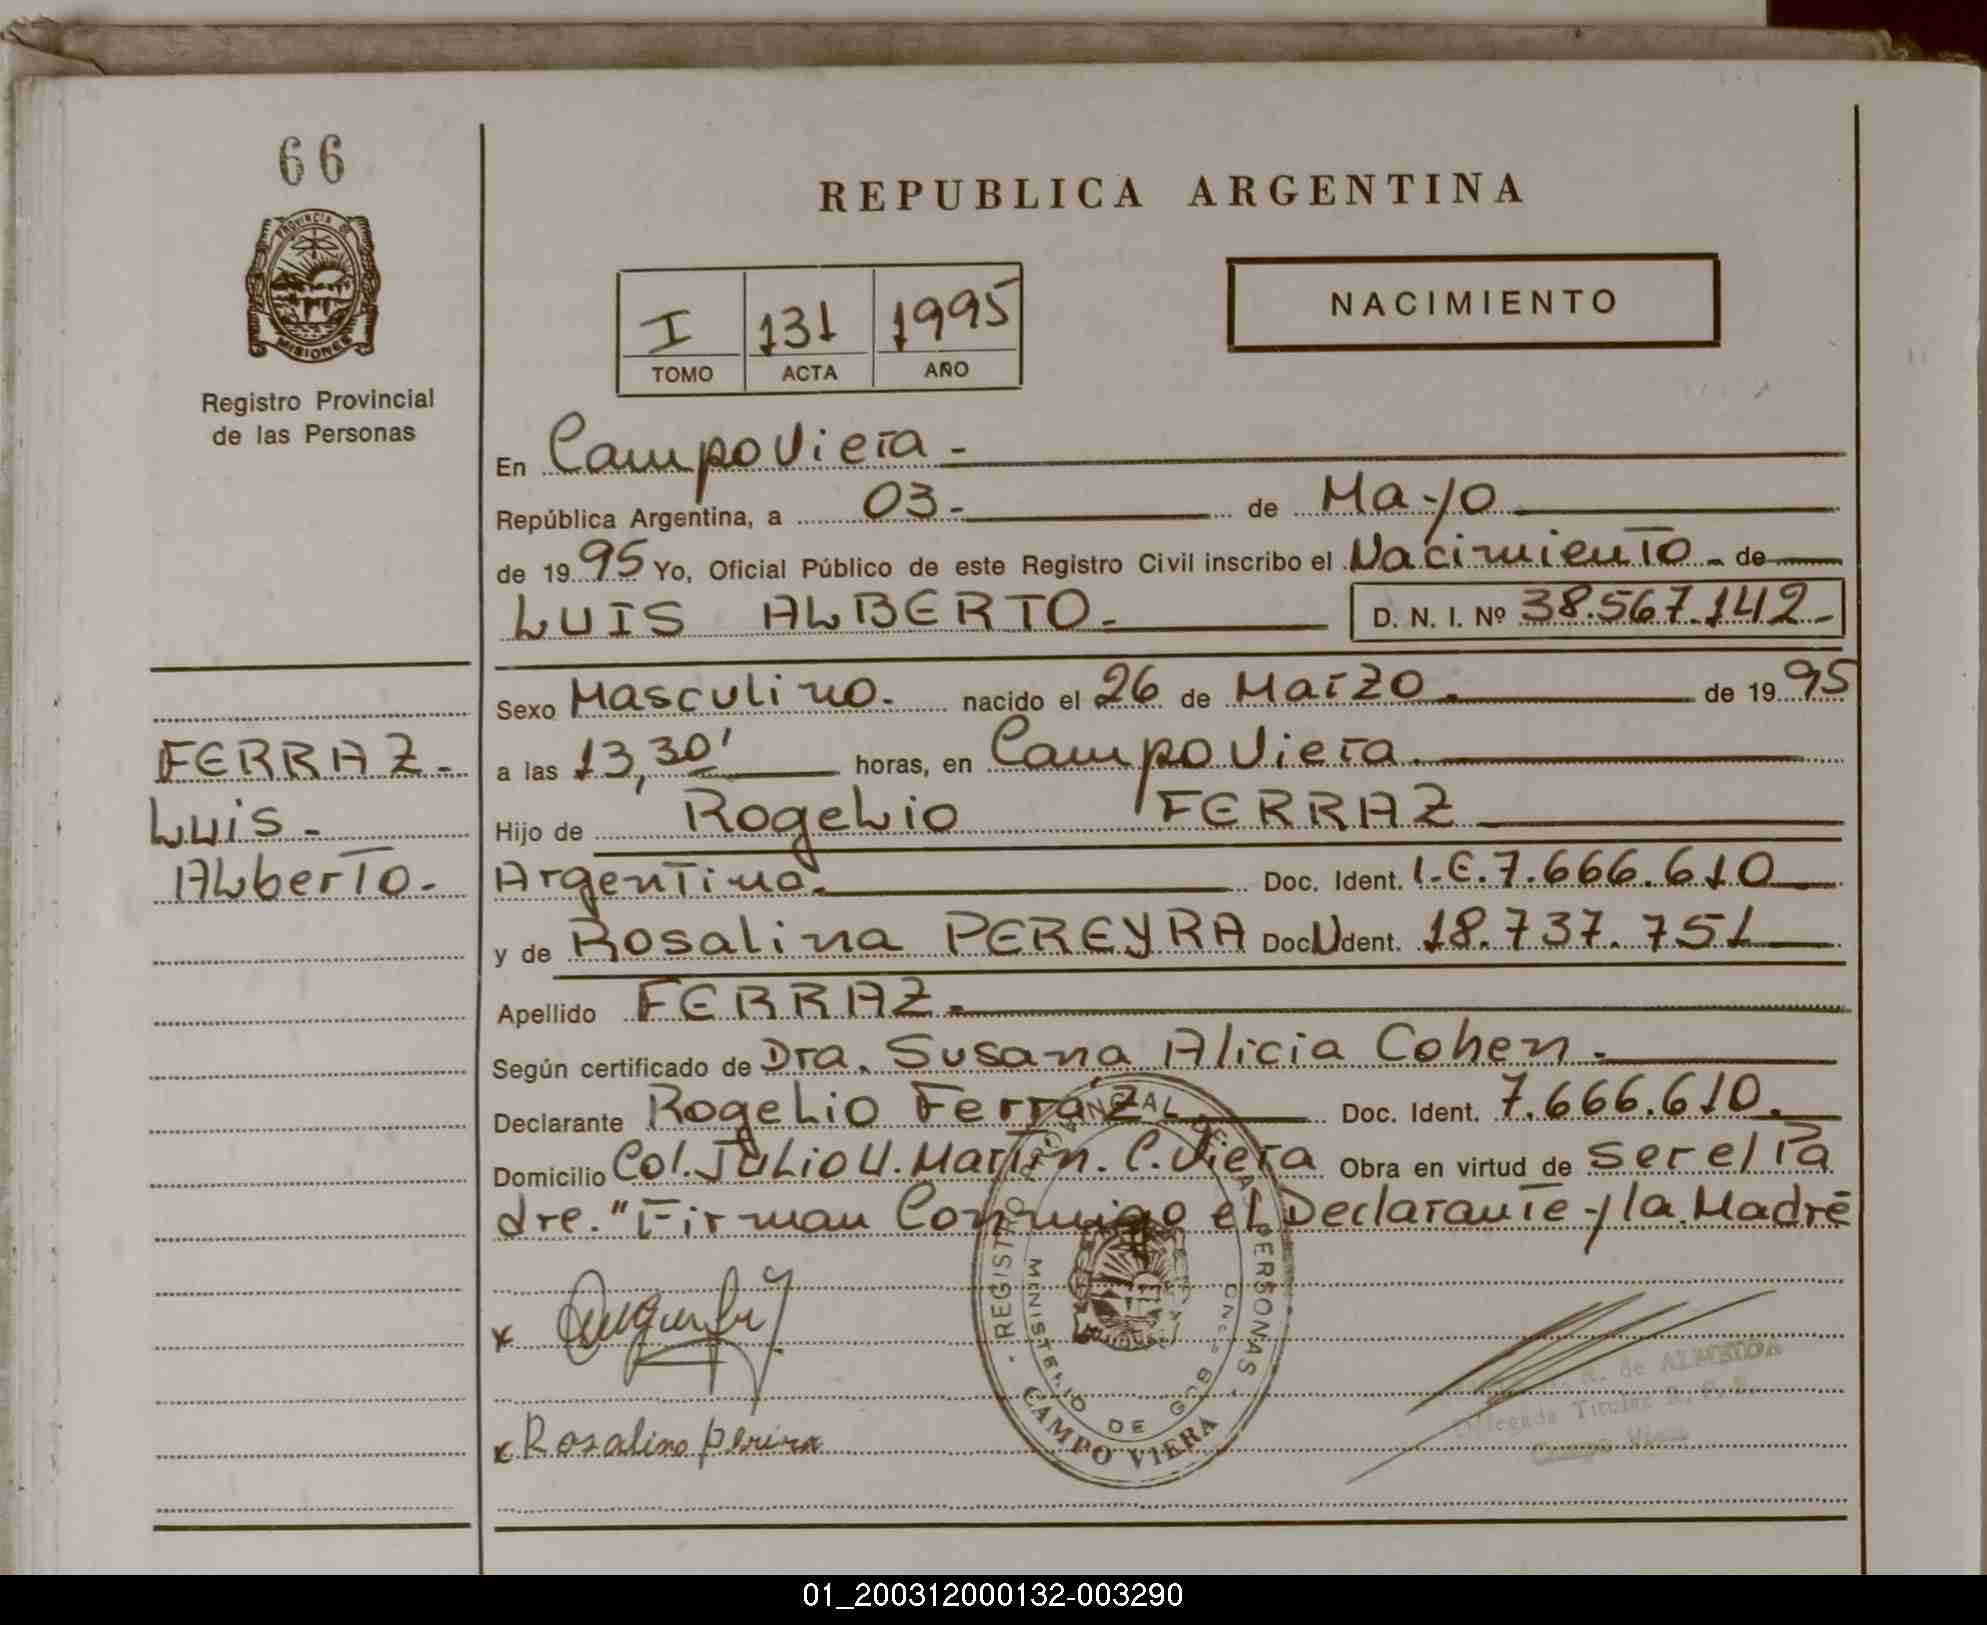 66
PROVINCIA DE
MISIONES
Registro Provincial
de las Personas
REPUBLICA ARGENTINA
NACIMIENTO
I 131 1995
TOMO ACTA AÑO
En Campo Viera -
República Argentina, a 03.- de Mayo
de 1995 Yo, Oficial Público de este Registro Civil inscribo el Nacimiento - de
LUIS ALBERTO.- D. N. I. Nº 38.567.142-
Sexo Masculino. nacido el 26 de Marzo. de 1995
FERRAZ.-
a las 13,30' horas, en Campo Viera.
Luis -
Hijo de Rogelio FERRAZ
Alberto.-
Argentino. Doc. Ident. L.E.7.666.610
y de Rosalina PEREYRA Doc. Udent. 18.737.751
Apellido FERRAZ.-
Según certificado de Dra. Susana Alicia Cohen.-
Declarante Rogelio Ferraz Doc. Ident. 7.666.610.
Domicilio Col. Julio U. Martin. C. Viera Obra en virtud de ser el Pa
dre." Firman Conmigo el Declarante y la Madre
x
x Rosalino pereira
REGISTRO PROVINCIAL DE LAS PERSONAS
MINISTERIO DE GOB
CAMPO VIERA
de ALMEIDA
Delegada Titular
Campo Viera
01_200312000132-003290